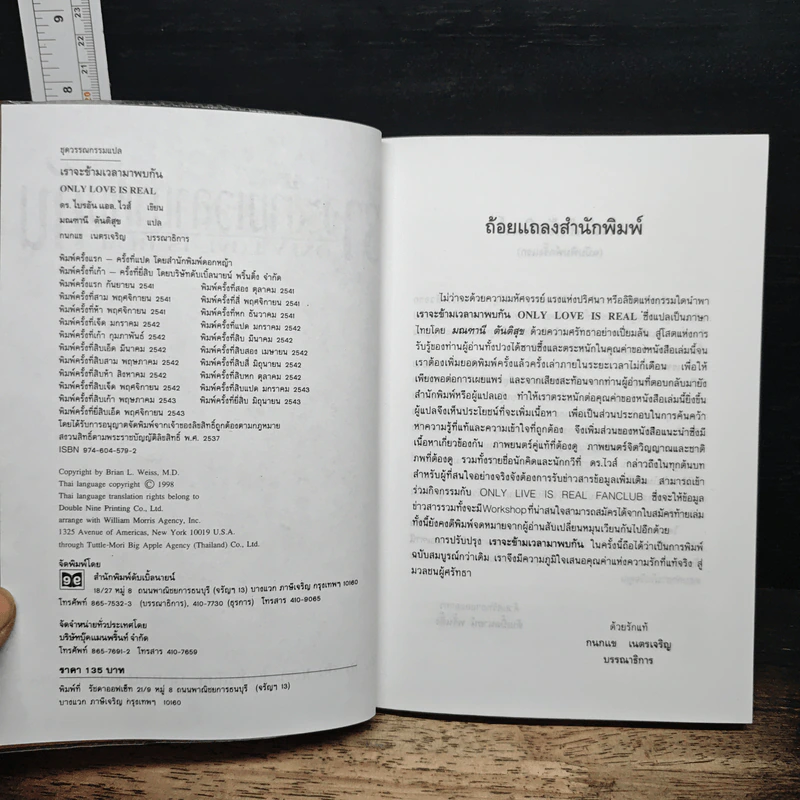 ชุดวรรณกรรมแปล
เราจะข้ามเวลามาพบกัน
ONLY LOVE IS REAL
ดร. ไบรอัน แอล. ไวส์ เขียน
มณฑานี ตันติสุข แปล
กนกแข เนตรเจริญ บรรณาธิการ
พิมพ์ครั้งแรก – ครั้งที่แปด โดยสำนักพิมพ์ดอกหญ้า
พิมพ์ครั้งที่เก้า – ครั้งที่ยี่สิบ โดยบริษัทดับเบิ้ลนายน์ พริ้นติ้ง จำกัด
พิมพ์ครั้งแรก กันยายน 2541 พิมพ์ครั้งที่สอง ตุลาคม 2541
พิมพ์ครั้งที่สาม พฤศจิกายน 2541 พิมพ์ครั้งที่สี่ พฤศจิกายน 2541
พิมพ์ครั้งที่ห้า พฤศจิกายน 2541 พิมพ์ครั้งที่หก ธันวาคม 2541
พิมพ์ครั้งที่เจ็ด มกราคม 2542 พิมพ์ครั้งที่แปด มกราคม 2542
พิมพ์ครั้งที่เก้า กุมภาพันธ์ 2542 พิมพ์ครั้งที่สิบ มีนาคม 2542
พิมพ์ครั้งที่สิบเอ็ด มีนาคม 2542 พิมพ์ครั้งที่สิบสอง เมษายน 2542
พิมพ์ครั้งที่สิบสาม พฤษภาคม 2542 พิมพ์ครั้งที่สิบสี่ มิถุนายน 2542
พิมพ์ครั้งที่สิบห้า สิงหาคม 2542 พิมพ์ครั้งที่สิบหก ตุลาคม 2542
พิมพ์ครั้งที่สิบเจ็ด พฤศจิกายน 2542 พิมพ์ครั้งที่สิบแปด มกราคม 2543
พิมพ์ครั้งที่สิบเก้า พฤษภาคม 2543 พิมพ์ครั้งที่ยี่สิบ มิถุนายน 2543
พิมพ์ครั้งที่ยี่สิบเอ็ด พฤศจิกายน 2543
โดยได้รับการอนุญาตจัดพิมพ์จากเจ้าของลิขสิทธิ์ถูกต้องตามกฎหมาย
สงวนลิขสิทธิ์ตามพระราชบัญญัติลิขสิทธิ์ พ.ศ. 2537
ISBN 974-604-579-2
Copyright by Brian L. Weiss, M.D.
Thai language copyright © 1998
Thai language translation rights belong to
Double Nine Printing Co., Ltd.
arrange with William Morris Agency, Inc.
1325 Avenue of Americas, New York 10019 U.S.A.
through Tuttle-Mori Big Apple Agency (Thailand) Co., Ltd.
จัดพิมพ์โดย
สำนักพิมพ์ดับเบิ้ลนายน์
18/27 หมู่ 8 ถนนพาณิชยการธนบุรี (จรัญฯ 13) บางแวก ภาษีเจริญ กรุงเทพฯ 10160
โทรศัพท์ 865-7532-3 (บรรณาธิการ), 410-7730 (ธุรการ) โทรสาร 410-9065
จัดจำหน่ายทั่วประเทศโดย
บริษัทบุ๊คแมนพริ้นท์ จำกัด
โทรศัพท์ 865-7691-2 โทรสาร 410-7659
ราคา 135 บาท
พิมพ์ที่ รัชดาออฟเซ็ท 21/9 หมู่ 8 ถนนพาณิชยการธนบุรี (จรัญฯ 13)
บางแวก ภาษีเจริญ กรุงเทพฯ 10160
ถ้อยแถลงสำนักพิมพ์
ไม่ว่าจะด้วยความมหัศจรรย์ แรงแห่งปริศนา หรือลิขิตแห่งกรรมใดนำพา
เราจะข้ามเวลามาพบกัน ONLY LOVE IS REAL ซึ่งแปลเป็นภาษา
ไทยโดย มณฑานี ตันติสุข ด้วยความศรัทธาอย่างเปี่ยมล้น สู่โสตแห่งการ
รับรู้ของท่านผู้อ่านทั้งปวงได้ซาบซึ้งและตระหนักในคุณค่าของหนังสือเล่มนี้จน
เราต้องเพิ่มยอดพิมพ์ครั้งแล้วครั้งเล่าภายในระยะเวลาไม่กี่เดือน เพื่อให้
เพียงพอต่อการเผยแพร่ และจากเสียงสะท้อนจากท่านผู้อ่านที่ตอบกลับมายัง
สำนักพิมพ์หรือผู้แปลเอง ทำให้เราตระหนักต่อคุณค่าของหนังสือเล่มนี้ยิ่งขึ้น
ผู้แปลจึงเห็นประโยชน์ที่จะเพิ่มเนื้อหา เพื่อเป็นส่วนประกอบในการค้นคว้า
หาความรู้ที่แท้และความเข้าใจที่ถูกต้อง จึงเพิ่มส่วนของหนังสือแนะนำซึ่งมี
เนื้อหาเกี่ยวข้องกัน ภาพยนตร์คู่แท้ที่ต้องดู ภาพยนตร์จิตวิญญาณและชาติ
ภพที่ต้องดู รวมทั้งรายชื่อนักคิดและนักกวีที่ ดร.ไวส์ กล่าวถึงในทุกต้นบท
สำหรับผู้ที่สนใจอย่างจริงจังต้องการรับข่าวสารข้อมูลเพิ่มเติม สามารถเข้า
ร่วมกิจกรรมกับ ONLY LIVE IS REAL FANCLUB ซึ่งจะให้ข้อมูล
ข่าวสารรวมทั้งจะมี Workshop ที่น่าสนใจสามารถสมัครได้จากใบสมัครท้ายเล่ม
ทั้งนี้ยังคงตีพิมพ์จดหมายจากผู้อ่านสับเปลี่ยนหมุนเวียนกันไปอีกด้วย
การปรับปรุง เราจะข้ามเวลามาพบกัน ในครั้งนี้ถือได้ว่าเป็นการพิมพ์
ฉบับสมบูรณ์กว่าเดิม เราจึงมีความภูมิใจเสนอคุณค่าแห่งความรักที่แท้จริง สู่
มวลชนผู้ศรัทธา
ด้วยรักแท้
กนกแข เนตรเจริญ
บรรณาธิการ